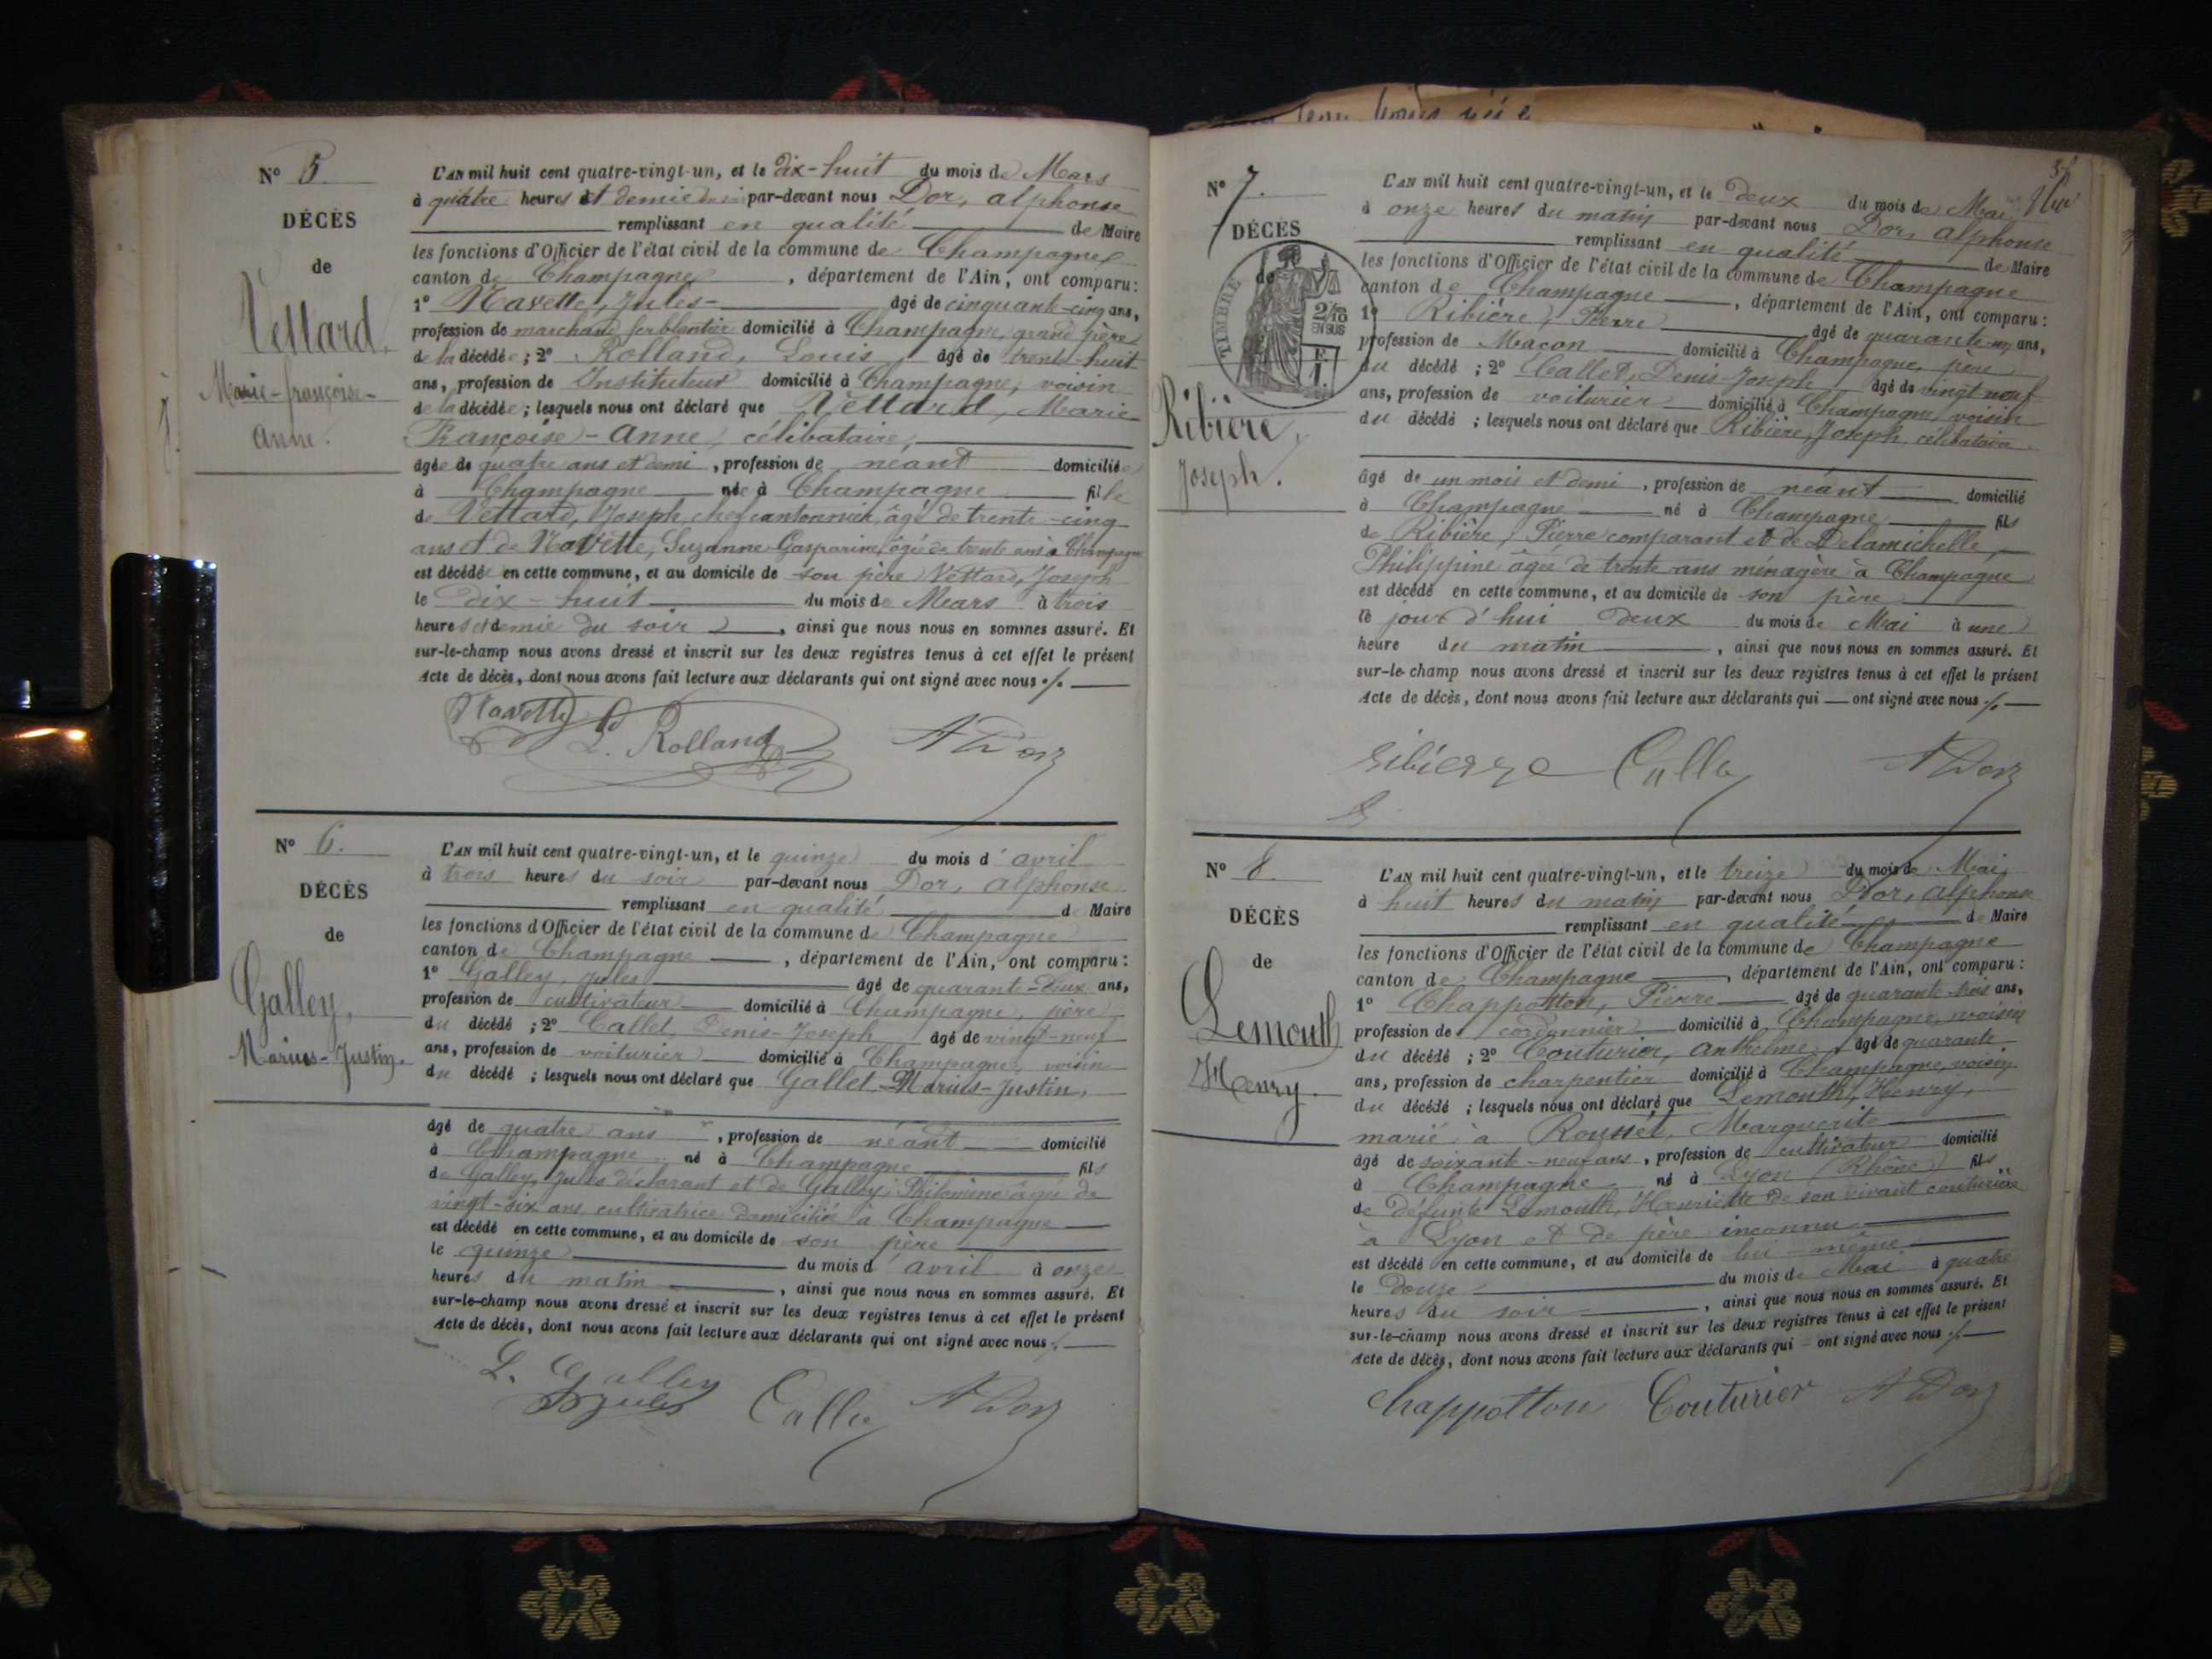 N° 5.
DÉCÈS
de
Vettard,
Marie-françoise-
Anne.
L'AN mil huit cent quatre-vingt-un, et le dix-huit du mois de Mars
à quatre heures et demie du soir par-devant nous Dor, alphonse
remplissant en qualité de Maire
les fonctions d'Officier de l'état civil de la commune de Champagne
canton de Champagne, département de l'Ain, ont comparu:
1° Navette, Jules- âgé de cinquante-cinq ans,
profession de marchand ferblantier domicilié à Champagne, grand père
de la décédée; 2° Rolland, Louis, âgé de trente-huit
ans, profession de Instituteur domicilié à Champagne, voisin
de la décédée; lesquels nous ont déclaré que Vettard, Marie
Françoise-Anne, célibataire,
âgée de quatre ans et demi, profession de néant domiciliée
à Champagne née à Champagne fille
de Vettard, Joseph, chef cantonnier, âgé de trente-cinq
ans et de Navette, Suzanne Gasparine, âgée de trente ans à Champagne
est décédée en cette commune, et au domicile de son père Vettard, Joseph
le dix-huit du mois de Mars à trois
heures et demie du soir, ainsi que nous nous en sommes assuré. Et
sur-le-champ nous avons dressé et inscrit sur les deux registres tenus à cet effet le présent
Acte de décès, dont nous avons fait lecture aux déclarants qui ont signé avec nous ./.
Navette L. Rolland A Dor
N° 6.
DÉCÈS
de
Galley,
Marius-Justin.
L'AN mil huit cent quatre-vingt-un, et le quinze du mois d'avril
à trois heures du soir par-devant nous Dor, alphonse
remplissant en qualité de Maire
les fonctions d'Officier de l'état civil de la commune de Champagne
canton de Champagne, département de l'Ain, ont comparu:
1° Galley, Jules âgé de quarant-deux ans,
profession de cultivateur domicilié à Champagne, père
du décédé; 2° Callet, Denis-Joseph âgé de vingt-neuf
ans, profession de voiturier domicilié à Champagne, voisin
du décédé; lesquels nous ont déclaré que Gallet, Marius-Justin,
âgé de quatre ans, profession de néant domicilié
à Champagne né à Champagne fils
de Galley, Jules déclarant et de Galley, Philomine âgée de
vingt-six ans, cultivatrice domiciliée à Champagne
est décédé en cette commune, et au domicile de son père
le quinze du mois d'avril à onze
heures du matin, ainsi que nous nous en sommes assuré. Et
sur-le-champ nous avons dressé et inscrit sur les deux registres tenus à cet effet le présent
Acte de décès, dont nous avons fait lecture aux déclarants qui ont signé avec nous ./.
L. Galley
Jules Calle A Dor
N° 7.
DÉCÈS
de
TIMBRE
2/10
EN SUS
Ribière,
Joseph.
L'AN mil huit cent quatre-vingt-un, et le deux du mois de Mai
à onze heures du matin par-devant nous Dor, alphonse
remplissant en qualité de Maire
les fonctions d'Officier de l'état civil de la commune de Champagne
canton de Champagne, département de l'Ain, ont comparu:
1° Ribière, Pierre âgé de quarante ans,
profession de Maçon domicilié à Champagne, père
du décédé; 2° Callet, Denis-Joseph âgé de vingt-neuf
ans, profession de voiturier domicilié à Champagne, voisin
du décédé; lesquels nous ont déclaré que Ribière, Joseph, célibataire
âgé de un mois et demi, profession de néant domicilié
à Champagne né à Champagne fils
de Ribière, Pierre comparant et de Delamichelle,
Philippine âgée de trente ans ménagère à Champagne
est décédé en cette commune, et au domicile de son père
le jour d'hui deux du mois de Mai à une
heure du matin, ainsi que nous nous en sommes assuré. Et
sur-le-champ nous avons dressé et inscrit sur les deux registres tenus à cet effet le présent
Acte de décès, dont nous avons fait lecture aux déclarants qui ont signé avec nous ./.
Calle A Dor
N° 8.
DÉCÈS
de
Lemouth
Henry.
L'AN mil huit cent quatre-vingt-un, et le treize du mois de Mai
à huit heures du matin par-devant nous Dor, alphonse
remplissant en qualité de Maire
les fonctions d'Officier de l'état civil de la commune de Champagne
canton de Champagne, département de l'Ain, ont comparu:
1° Chappotton, Pierre âgé de quarante-trois ans,
profession de cordonnier domicilié à Champagne, voisin
du décédé; 2° Couturier, Anthelme, âgé de quarante
ans, profession de charpentier domicilié à Champagne, voisin
du décédé; lesquels nous ont déclaré que Lemouth, Henry,
marié à Rousset, Marguerite
âgé de soixante-neuf ans, profession de cultivateur domicilié
à Champagne né à Lyon (Rhône) fils
de défunte Lemouth, Henriette de son vivant couturière
à Lyon et de père inconnu
est décédé en cette commune, et au domicile de lui-même
le douze du mois de Mai à quatre
heures du soir, ainsi que nous nous en sommes assuré. Et
sur-le-champ nous avons dressé et inscrit sur les deux registres tenus à cet effet le présent
Acte de décès, dont nous avons fait lecture aux déclarants qui ont signé avec nous ./.
Chappotton Couturier A Dor